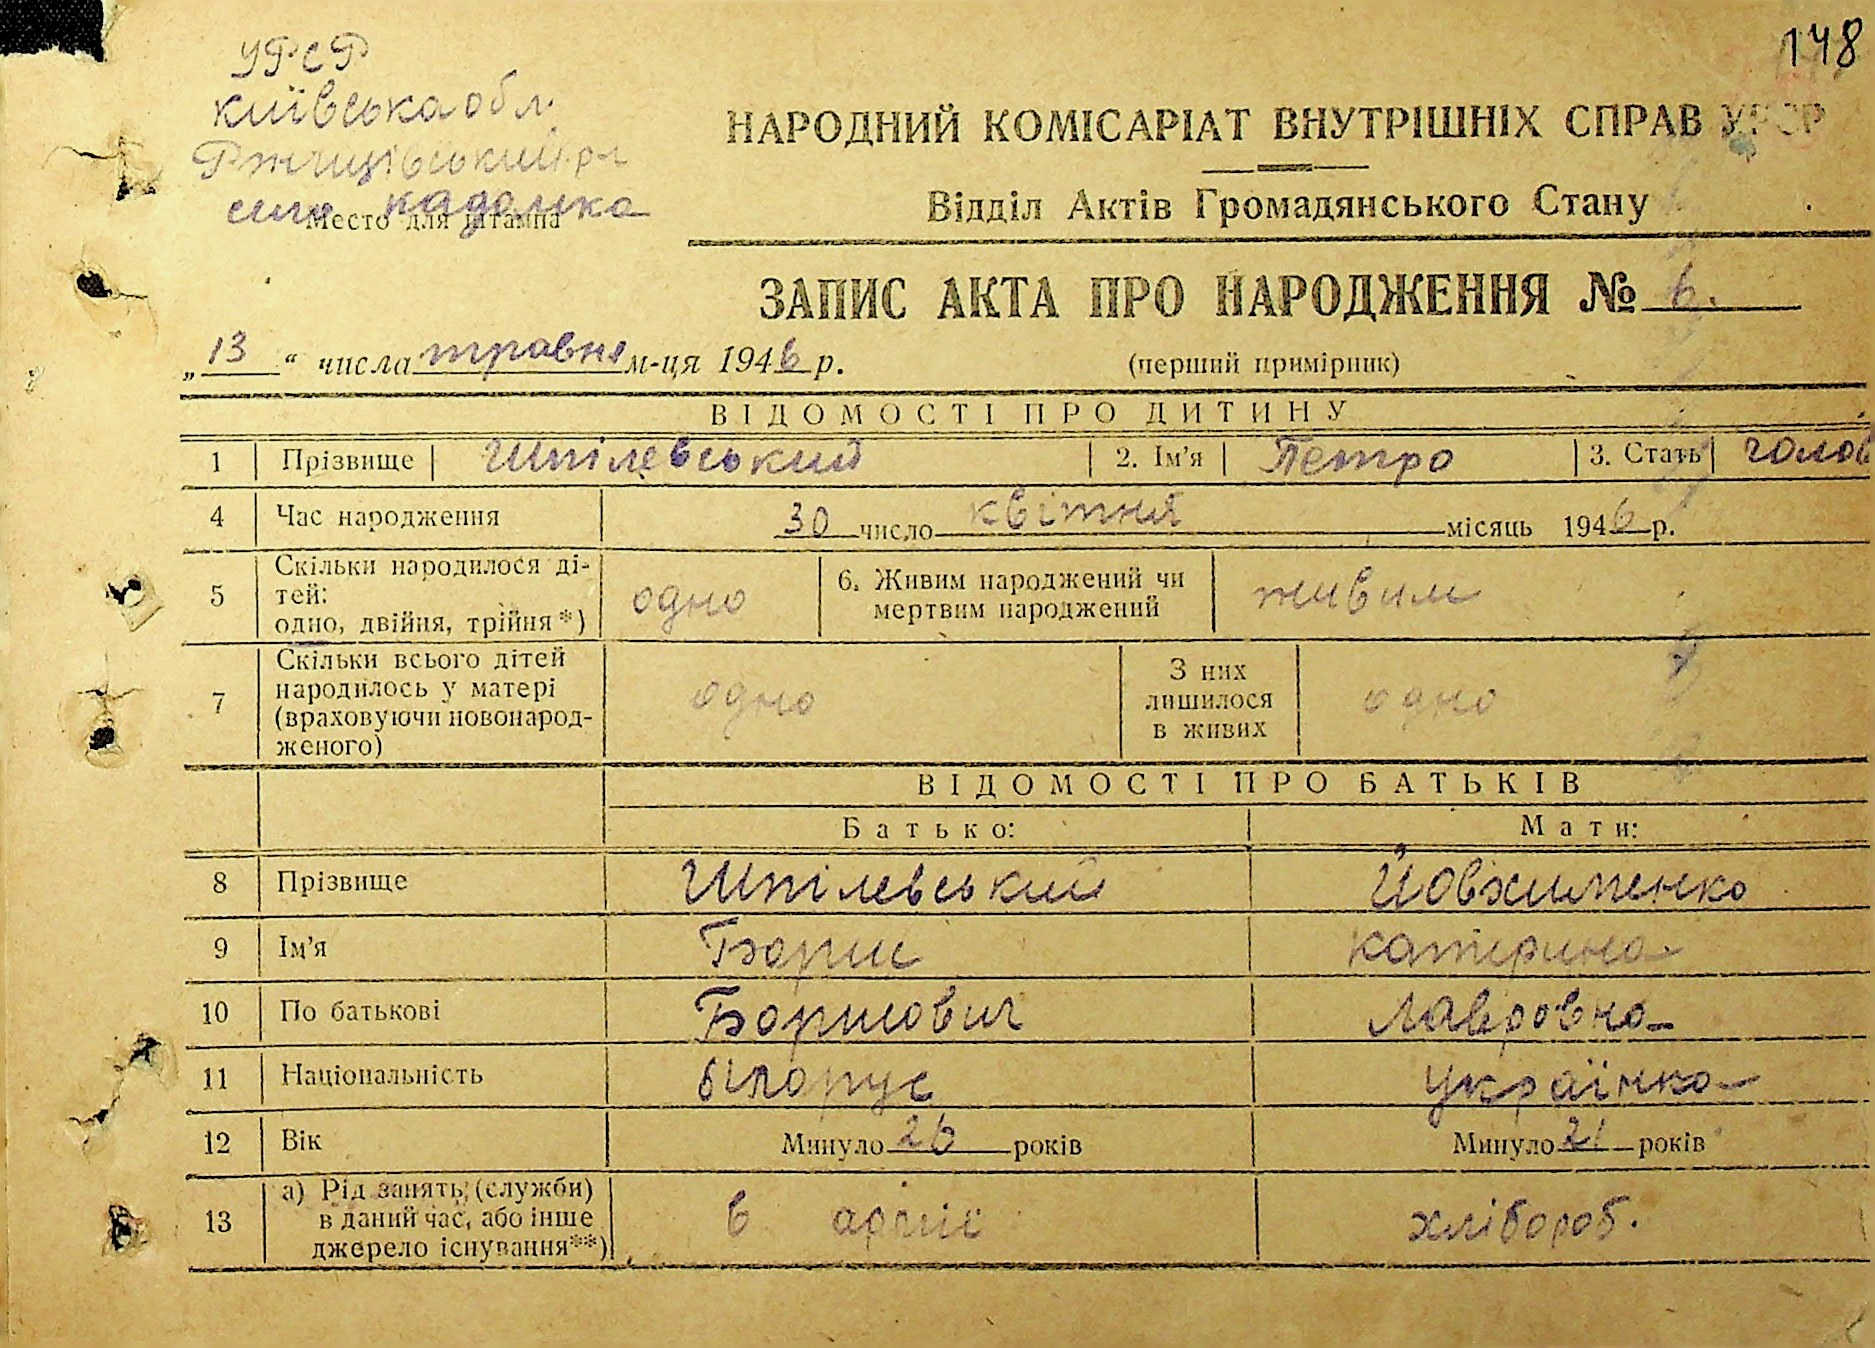 148
УРСР
київська обл.
Ржищівський р-н
село кадомка
Место для штампа
НАРОДНИЙ КОМІСАРІАТ ВНУТРІШНІХ СПРАВ УРСР
Відділ Актів Громадянського Стану
ЗАПИС АКТА ПРО НАРОДЖЕННЯ № 6.
„13“ числа травня м-ця 1946 р. (перший примірник)
ВІДОМОСТІ ПРО ДИТИНУ
1 Прізвище Шпілевський 2. Ім'я Петро 3. Стать голов
4 Час народження 30 число квітня місяць 1946 р.
5 Скільки народилося ді-
тей:
одно, двійня, трійня*) одно
6. Живим народжений чи
мертвим народжений живим
7 Скільки всього дітей
народилось у матері
(враховуючи новонарод-
женого) одно
З них
лишилося
в живих одно
ВІДОМОСТІ ПРО БАТЬКІВ
Батько: Мати:
8 Прізвище Шпілевський Йовхименко
9 Ім'я Борис катерина
10 По батькові Борисович Лавровна
11 Національність білорус українка
12 Вік Минуло 26 років Минуло 21 років
13 а) Рід занять (служби)
в даний час, або інше
джерело існування**) в армії хлібороб.